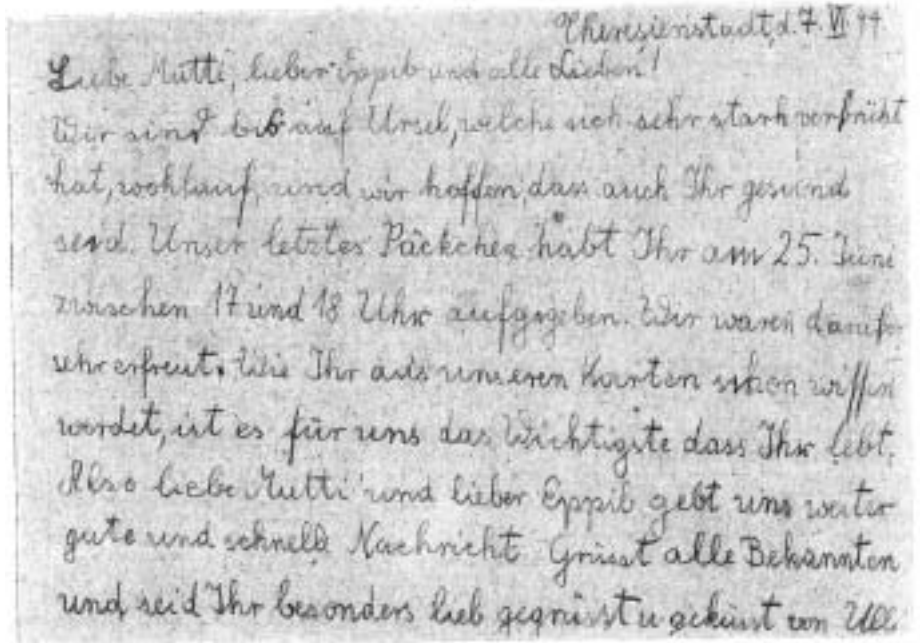 Theresienstadt, d. 7. VI 44.
Liebe Mutti, lieber Eppib und alle Lieben!
Wir sind bis auf Ursel, welche sich sehr stark verbrüht
hat, wohlauf, und wir hoffen, dass auch Ihr gesund
seid. Unser letztes Päckchen habt Ihr am 25. Juni
zwischen 17 und 18 Uhr aufgegeben. Wir waren darüber
sehr erfreut. Wie Ihr aus unseren Karten schon wissen
werdet, ist es für uns das Wichtigste dass Ihr lebt.
Also liebe Mutti und lieber Eppib gebt uns weiter
gute und schnelle Nachricht Grüsst alle Bekannten
und seid Ihr besonders lieb gegrüsst u geküsst von Ulli